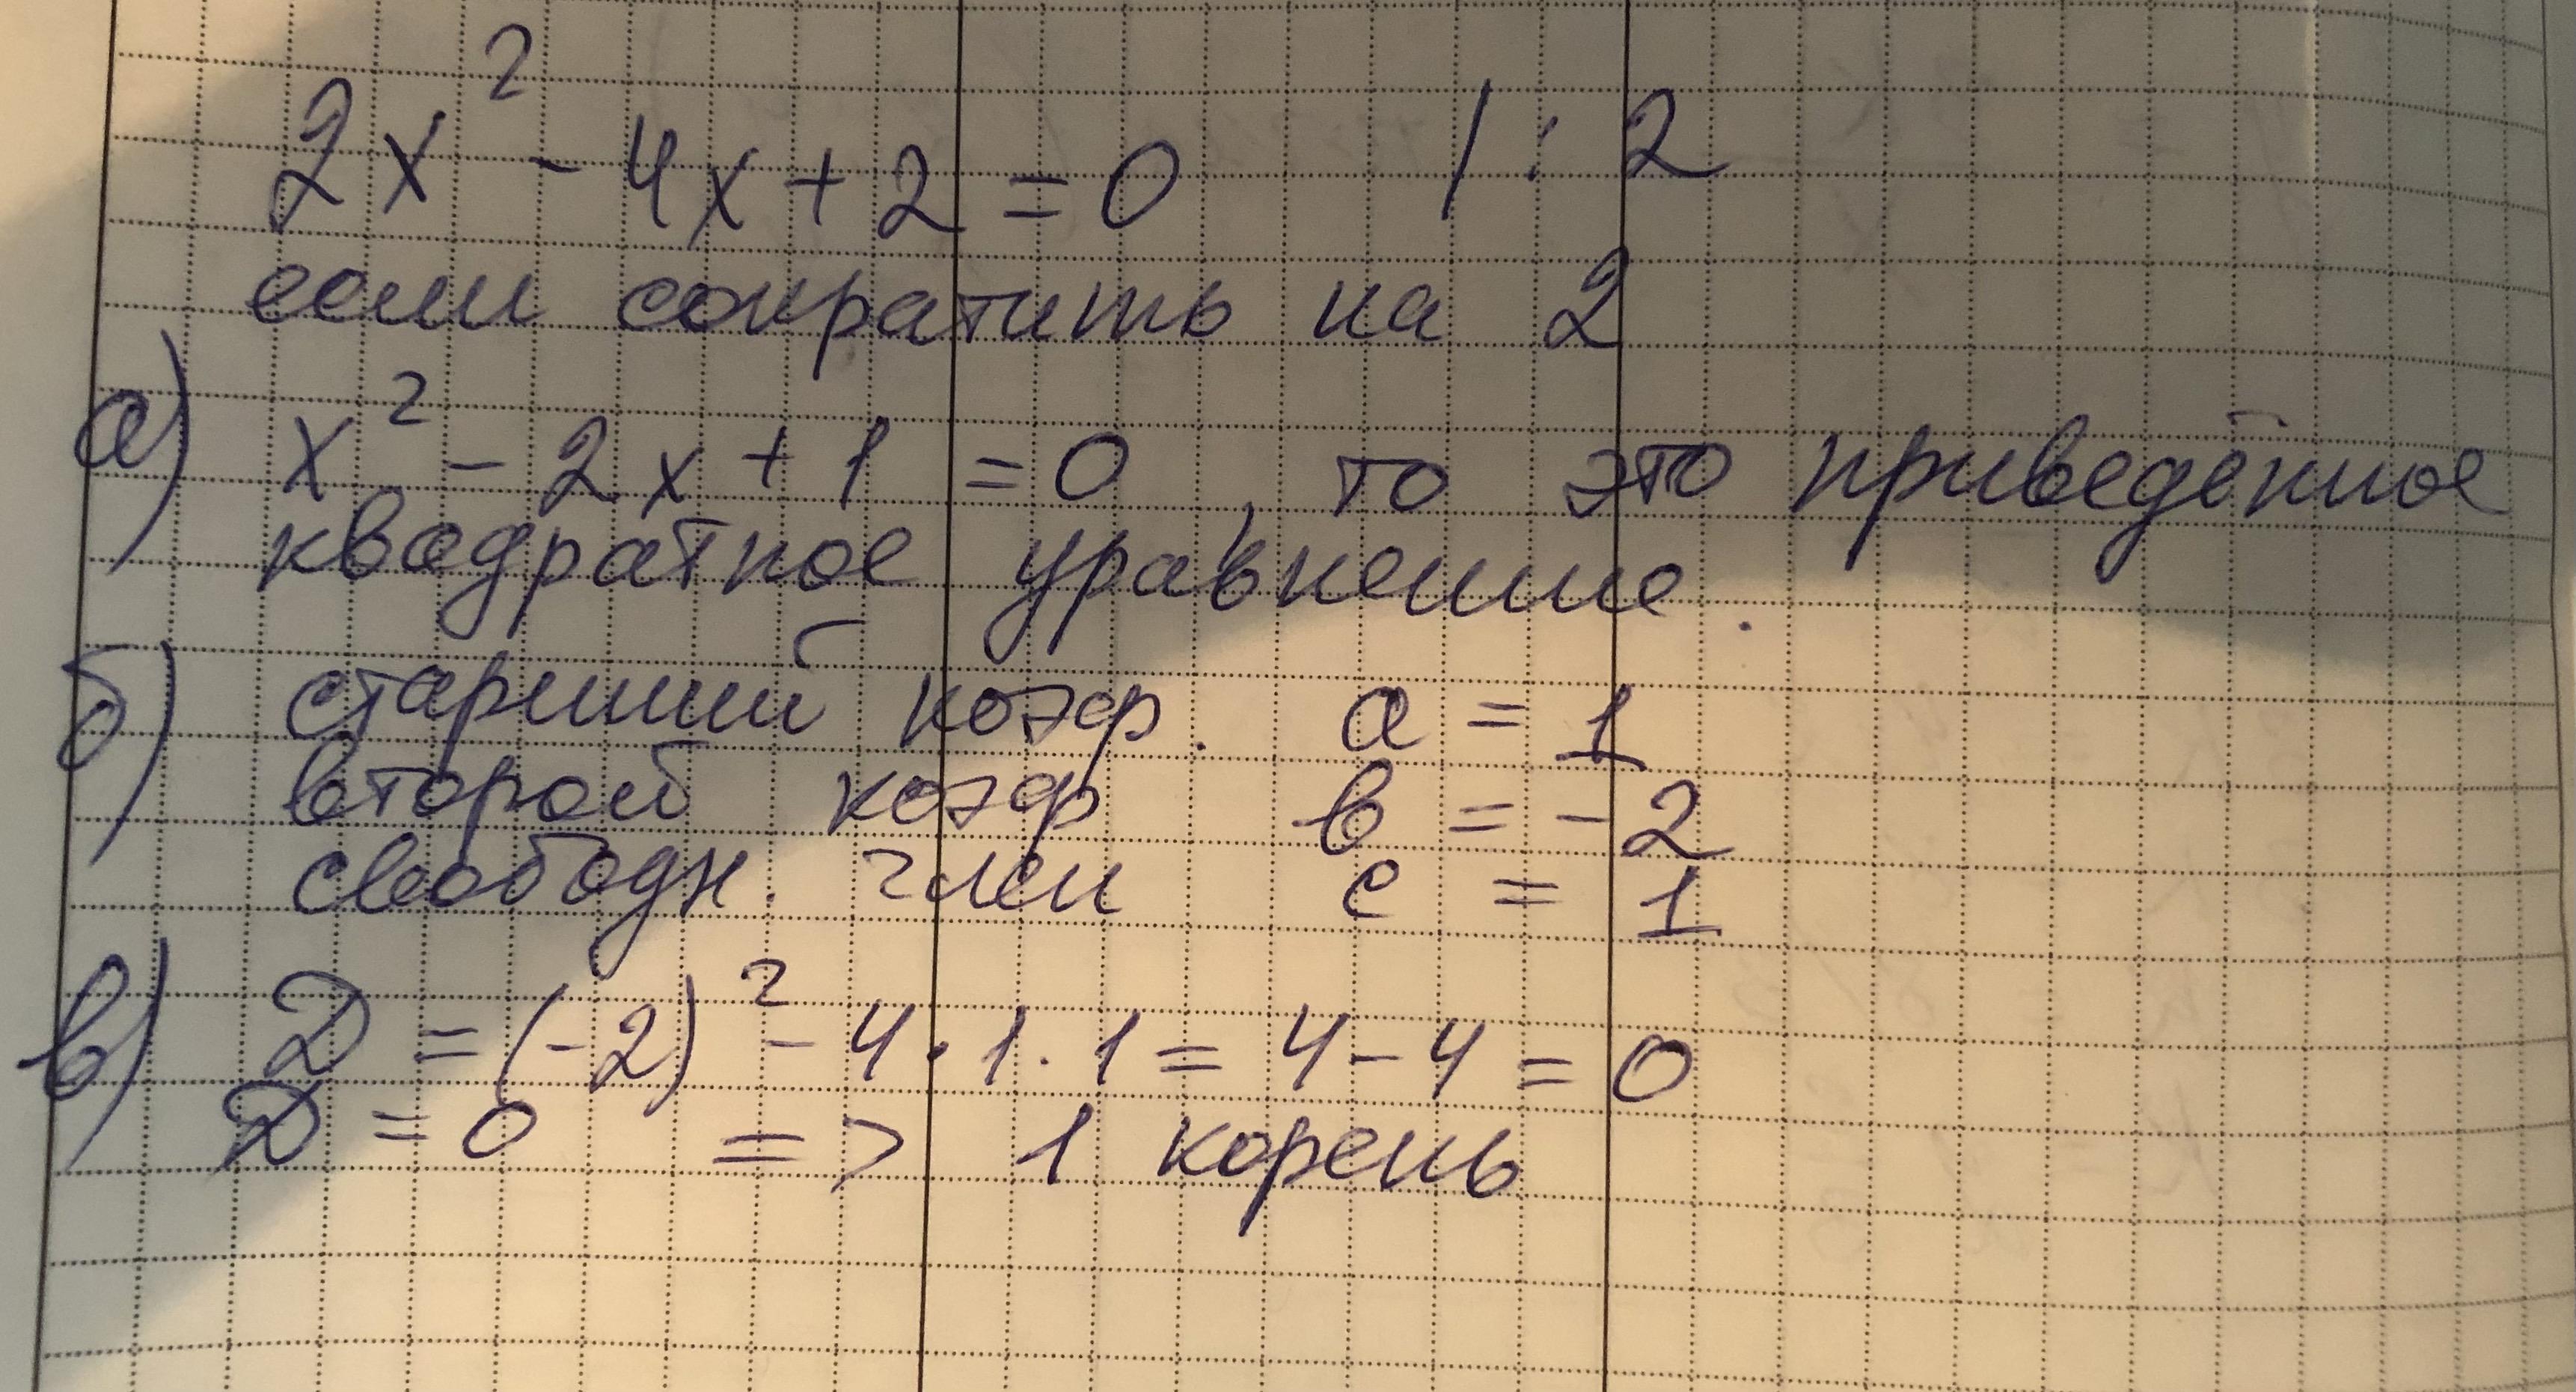 2x² - 4x + 2 = 0 / : 2
если сократить на 2
а) x² - 2x + 1 = 0, то это приведённое
квадратное уравнение.
б) старший коэф. a = 1
второй коэф в = -2
свободн. член с = 1
в) D = (-2)² - 4 · 1 · 1 = 4 - 4 = 0
D = 0 => 1 корень